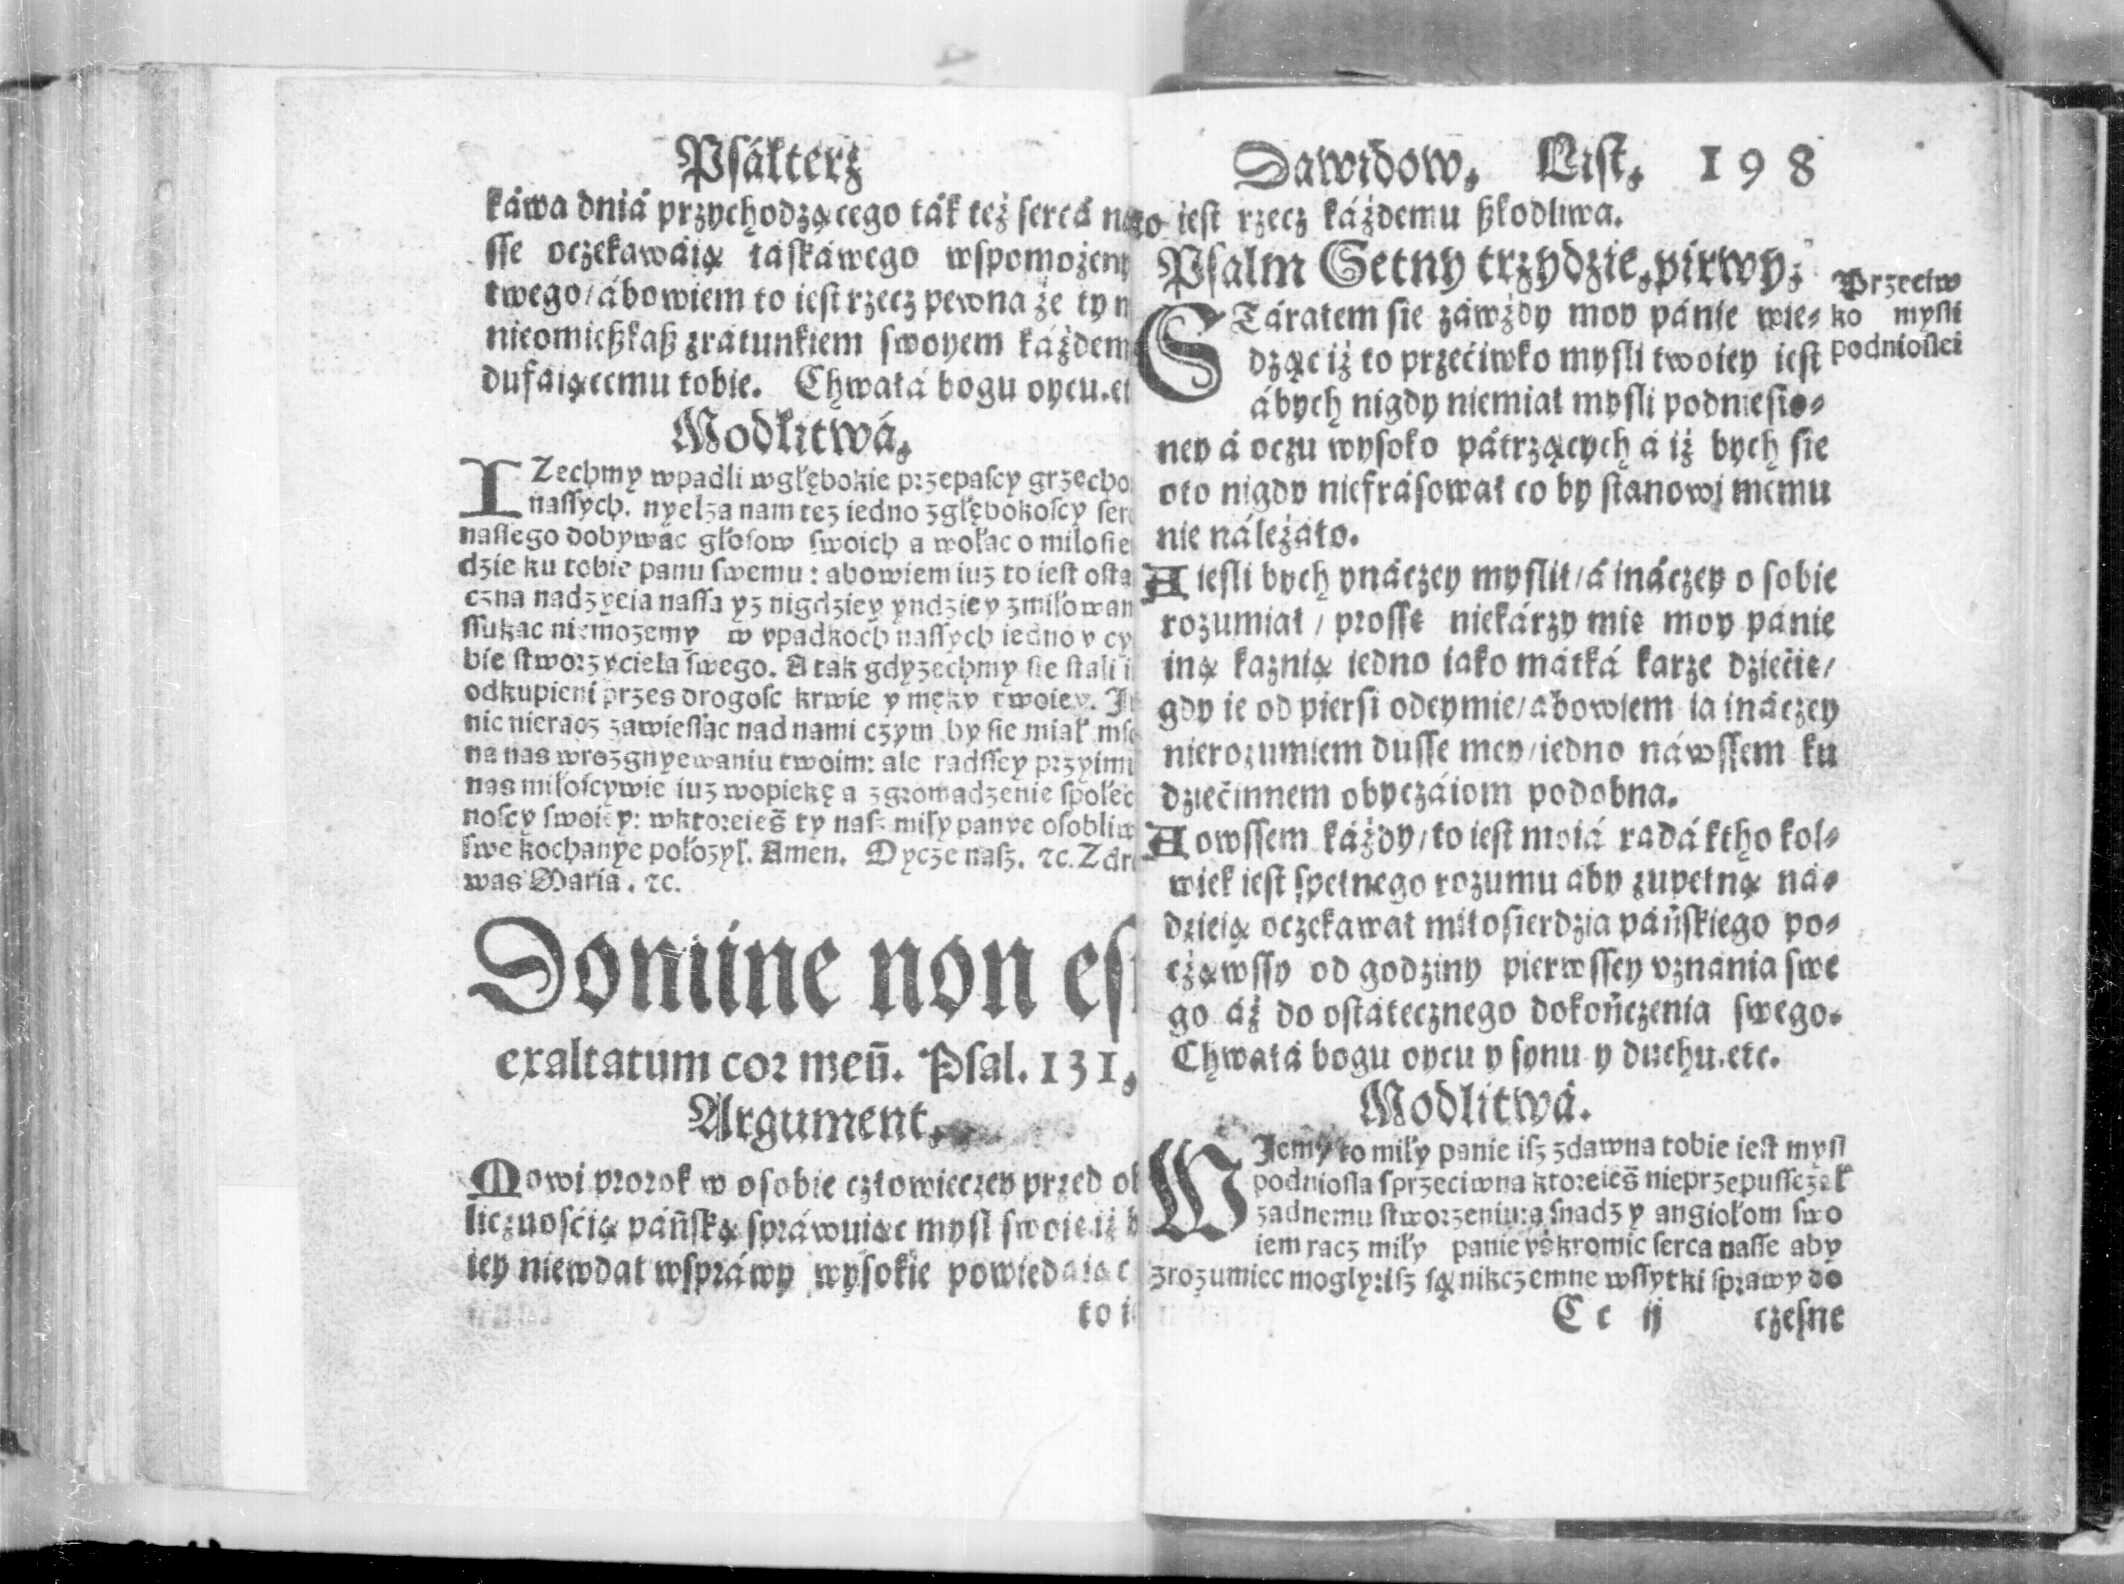 Psałterz
káwa dniá przychodzącego ták też sercá
sse oczekawáią łáskáwego wspomożen
twego/ ábowiem to iest rzecz pewna że ty
nieomießkaß zrátunkiem swoyem káżdem
dufáiącemu tobie. Chwałá bogu oycu.et
Modlitwá.
IZechmy wpadli wgłębokie przepascy grzecho
nassych. nyelza nam tez iedno zgłębokoscy ser
nassego dobywác głosow swoich a wołac o miłosie
dzie ku tobie panu swemu: abowiem iuz to iest osta
czna nadzyeia nassa yz nigdziey yndziey zmiłowan
ssukac niemozemy w vpadkoch nassych iedno v cy
bie stworzyciela swego. A tak gdyzechmy sie stali i
odkupieni przes drogosc krwie y męky twoiey.
nic nieracz zawiessac nad nami czym by sie miał
na nas wrozgnyewaniu twoim: ale radssey przyimi
nas miłoscywie iuz wopiekę a zgromadzenie społec
noscy swoiey: wktoreies ty nasz miły panye osobliw
swe kochanye położył. Amen. Oycze nasz. ⁊c. Zdro
was Maria. ⁊c.
Domine non es
exaltatum cor meū. Psal. 131.
Argument.
Mowi prorok w osobie człowieczey przed ob
licznosćią páńską spráwuiąc mysl swoię iż
iey niewdał wspráwy wysokie powiedáiąc
to
Dawidow. List. 198
to iest rzecz káżdemu ßkodliwa.
Psalm Setny trzydzie. pirwy.
Przeciw
ko mysli
podniosłei
STárałem sie záwżdy moy pánie wie-
dząc iż to przećiwko mysli twoiey iest
ábych nigdy niemiał mysli podniesio-
ney á oczu wysoko pátrzących á iż bych sie
oto nigdy niefrásował co by stanowi memu
nie náleżáło.
A iesli bych ynáczey myslił/ á ináczey o sobie
rozumiał/ prosse niekárzy mie moy pánie
iną kaznią iedno iáko mátká karze dziećie/
gdy ie od piersi odeymie/ ábowiem ia ináczey
nierozumiem dusse mey/ iedno náwssem ku
dziećinnem obyczáiom podobna.
A owssem káżdy/ to iest moiá radá ktho kol-
wiek iest spełnego rozumu aby zupełną ná-
dzieią oczekawał miłosierdzia páńskiego po-
cżąwssy od godziny pierwssey vznánia swe
go áż do ostátecznego dokończenia swego.
Chwałá bogu oycu y synu y duchu.etc.
Modlitwá.
WIemy to miły panie isz zdawna tobie iest mysl
podniosla sprzeciwna ktoreies nieprzepussczał
zadnemu stworzeniu: a snadz y angiołom swo
iem racz miły panie yskromic serca nasse aby
zrozumiec mogly: isz są nikczemne wssytki sprawy do
Cc ij czesne